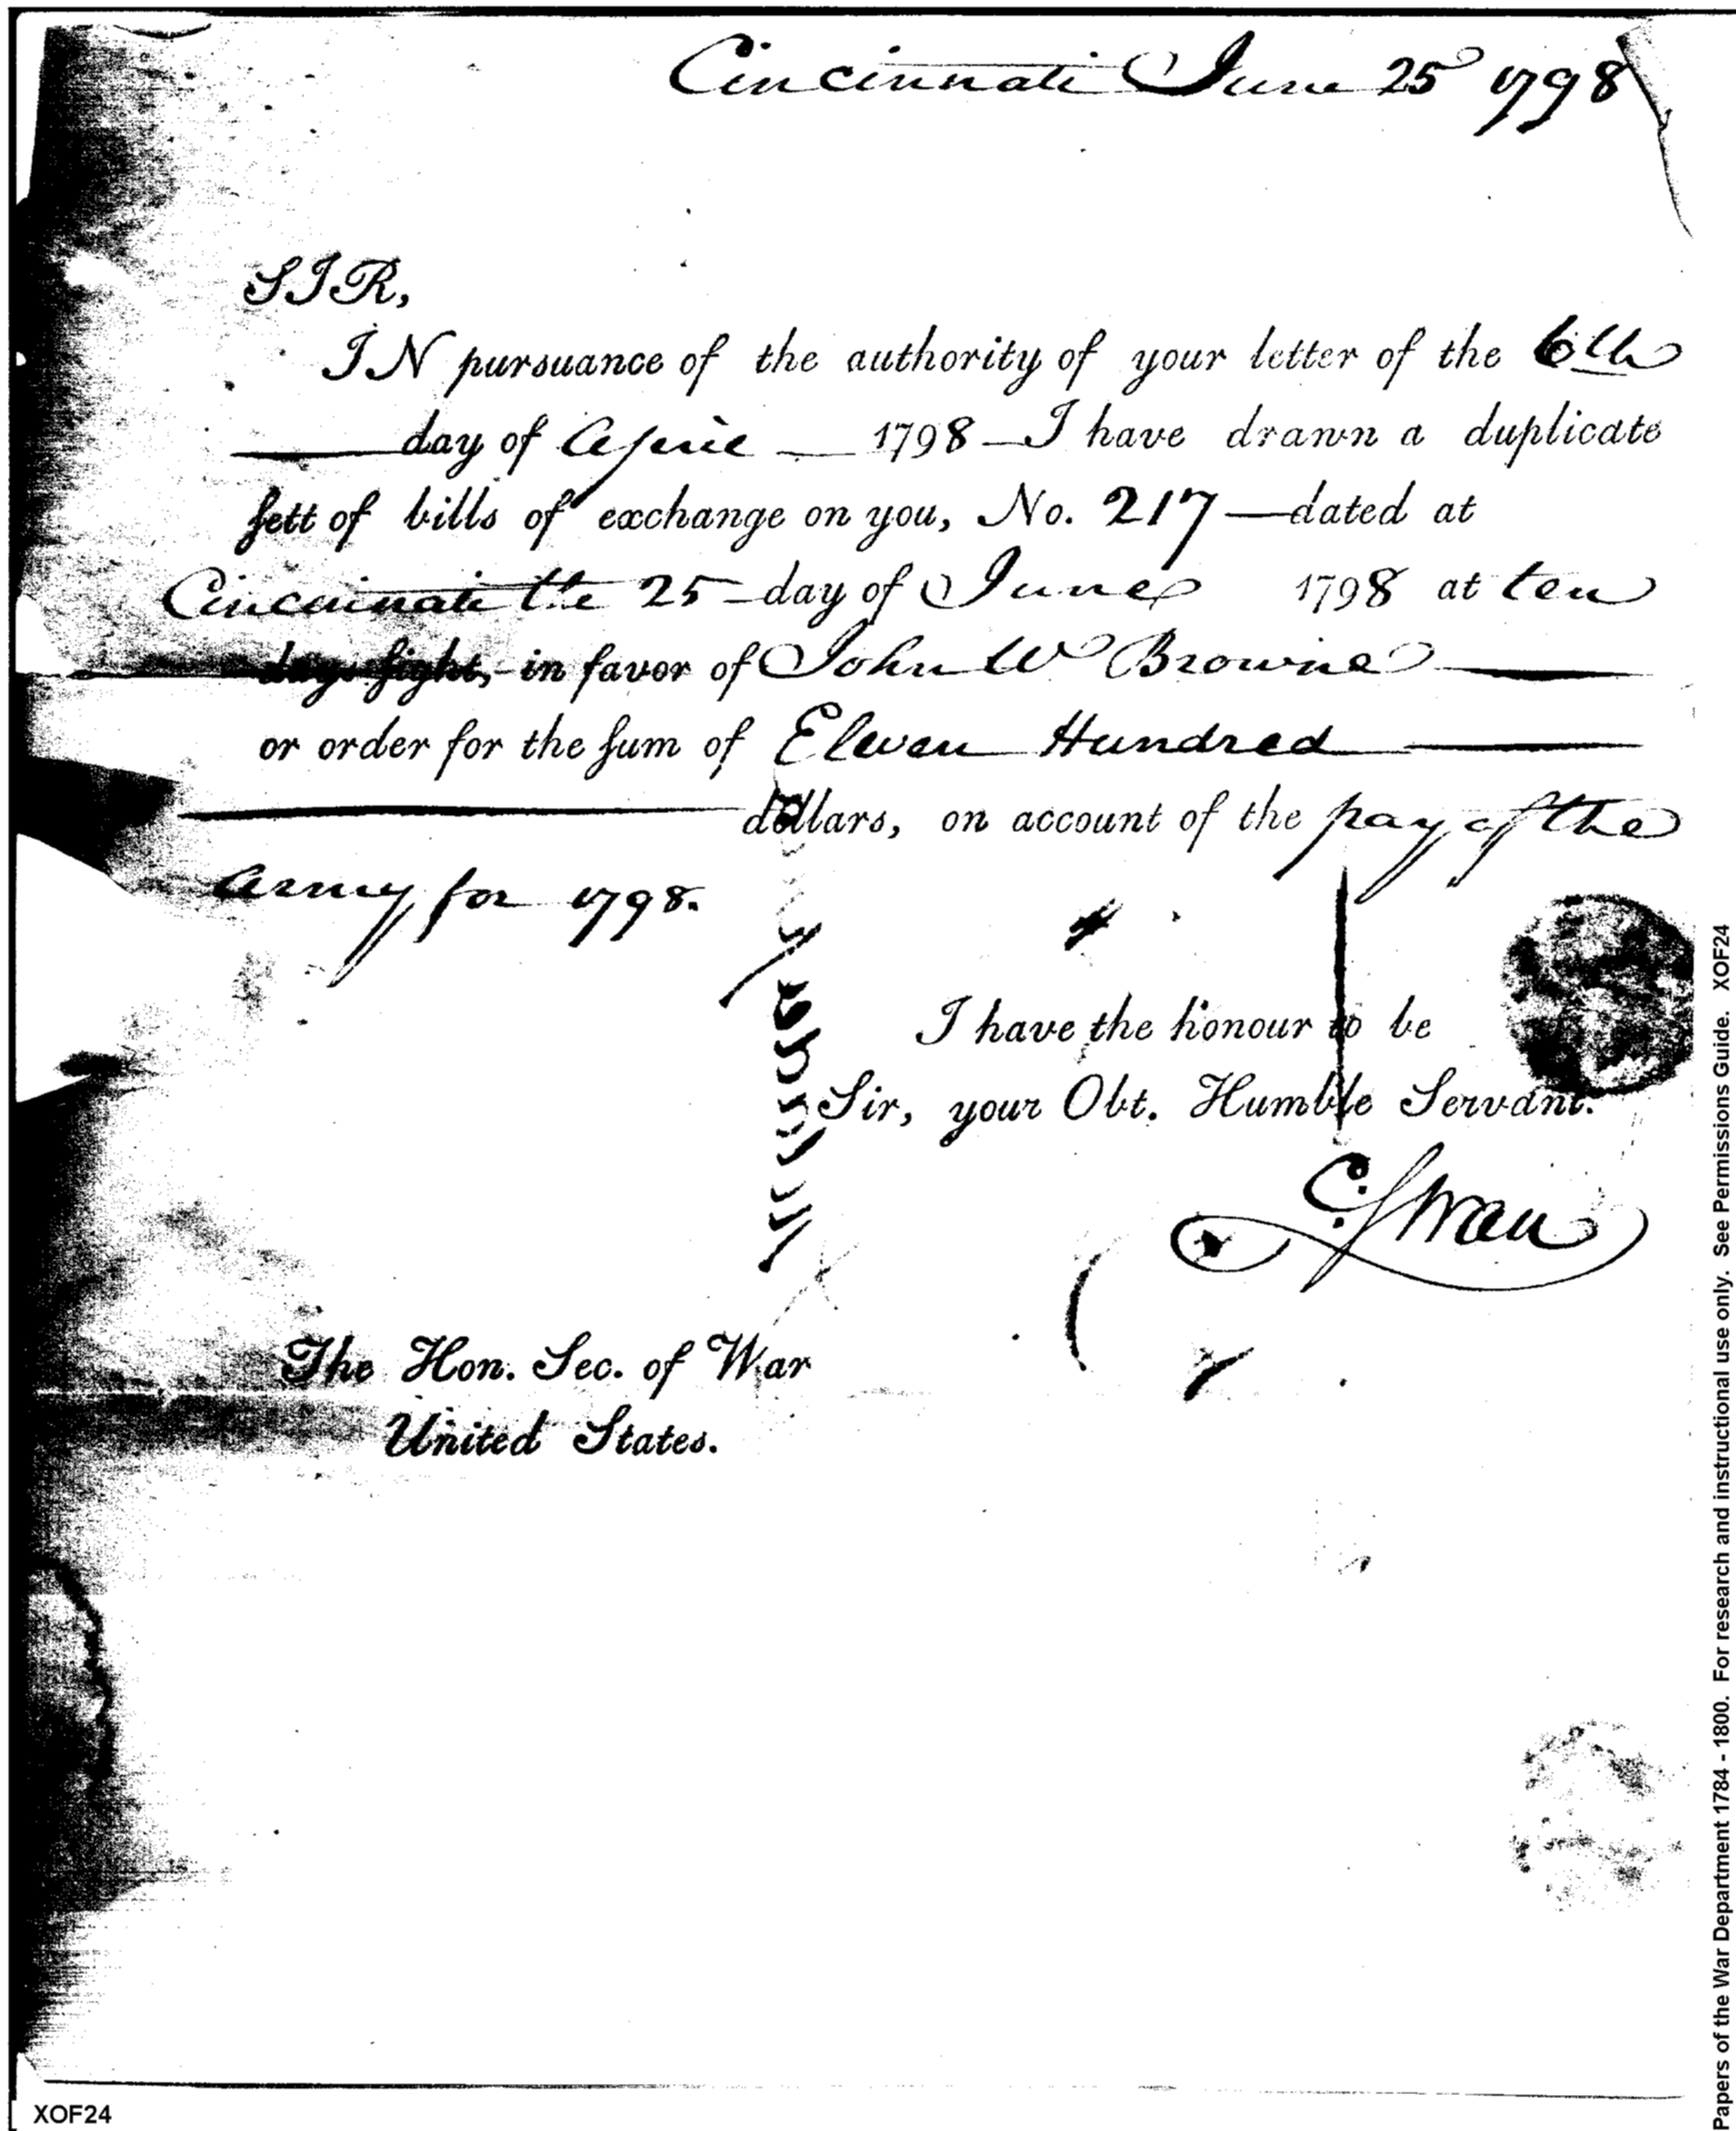 Cincinnati June 25 1798
SIR,
IN pursuance of the authority of your letter of the 6th
day of April 1798 I have drawn a duplicate
sett of bills of exchange on you, No. 217 dated at
Cincinnati the 25 day of June 1798 at ten
days sight, in favor of John W Browne
or order for the sum of Eleven Hundred
dollars, on account of the pay of the
Army for 1798.
I have the honour to be
Sir, your Obt. Humble Servant.
C. Swan
The Hon. Sec. of War
United States.
XOF24
Papers of the War Department 1784 - 1800. For research and instructional use only. See Permissions Guide. XOF24